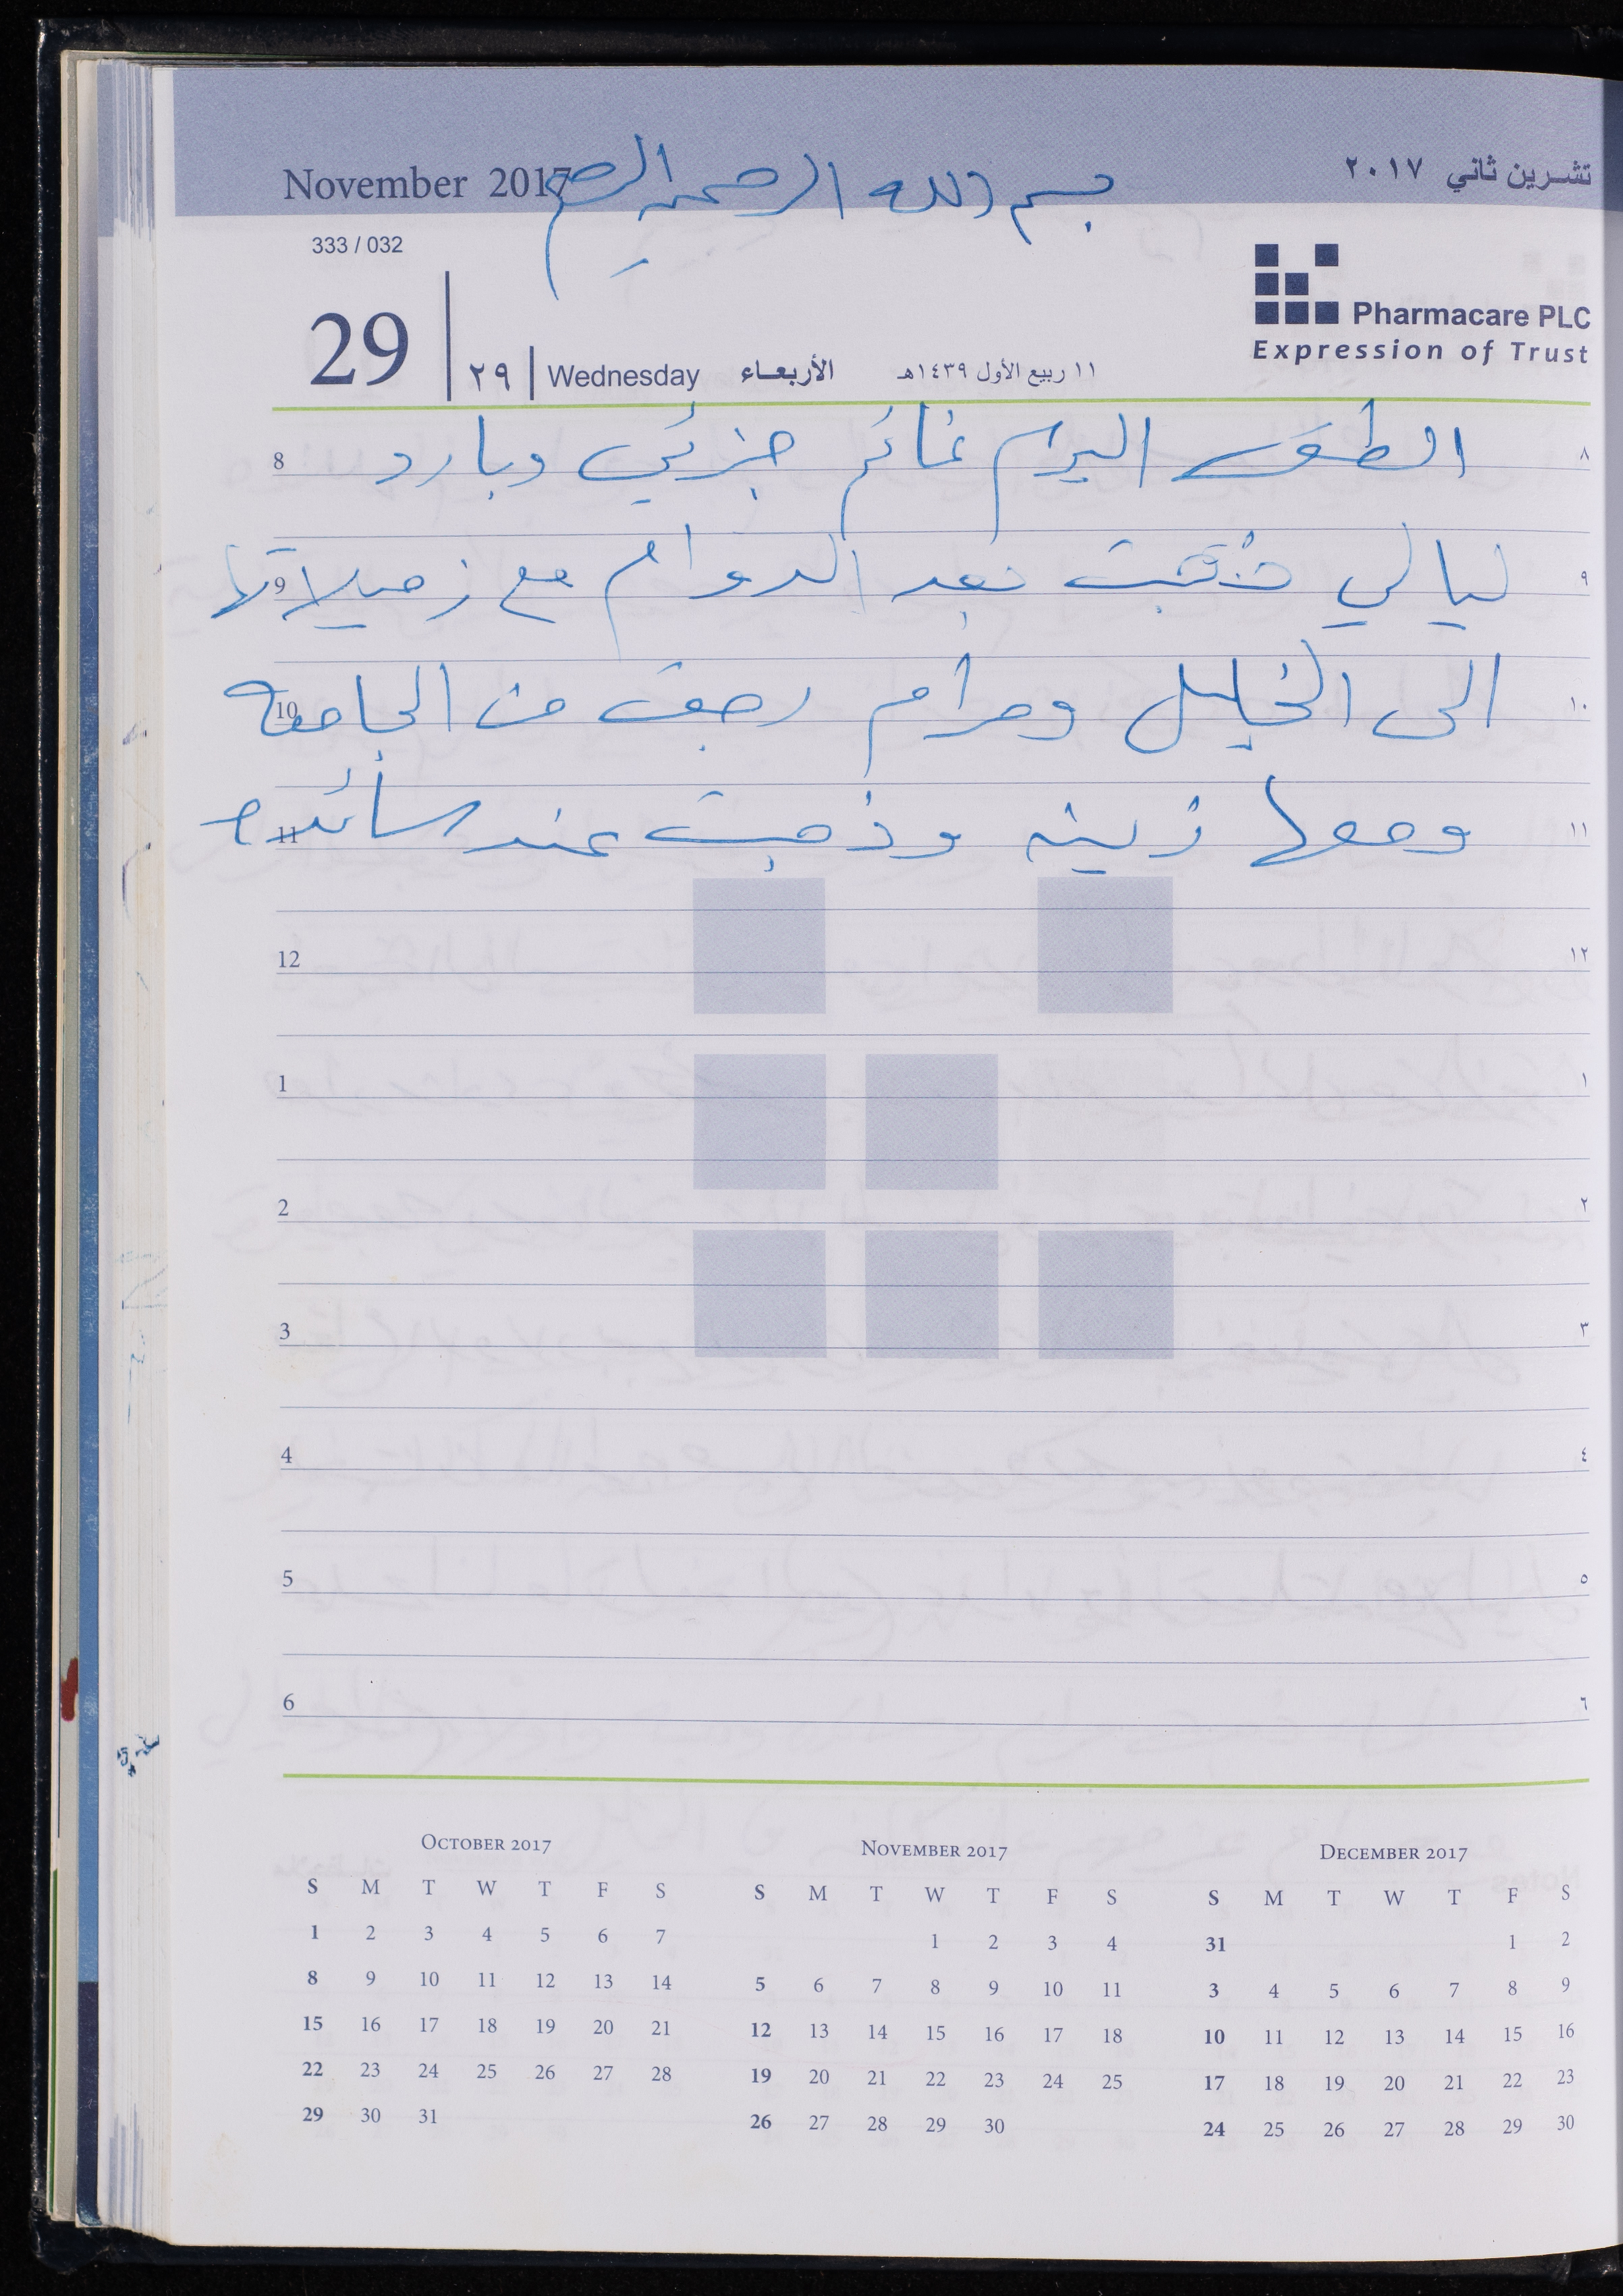 بسم الله الرحمن الرحيم
November 2017
تشرين ثاني ٢٠١٧
333 / 032
Pharmacare PLC
Expression of Trust
29 ٢٩ Wednesday الأربعاء ١١ ربيع الأول ١٤٣٩هـ
8 الطقس اليوم غائم جزئي وبارد ٨
9 ليالي ذهبت بعد الدوام مع زميلاتها ٩
10 الى الخليل ومرام رجعت من الجامعه ١٠
11 ومعها زينه وذهبت عند سائده ١١
12 ١٢
1 ١
2 ٢
3 ٣
4 ٤
5 ٥
6 ٦
October 2017
S M T W T F S
1 2 3 4 5 6 7
8 9 10 11 12 13 14
15 16 17 18 19 20 21
22 23 24 25 26 27 28
29 30 31
November 2017
S M T W T F S
1 2 3 4
5 6 7 8 9 10 11
12 13 14 15 16 17 18
19 20 21 22 23 24 25
26 27 28 29 30
December 2017
S M T W T F S
31 1 2
3 4 5 6 7 8 9
10 11 12 13 14 15 16
17 18 19 20 21 22 23
24 25 26 27 28 29 30